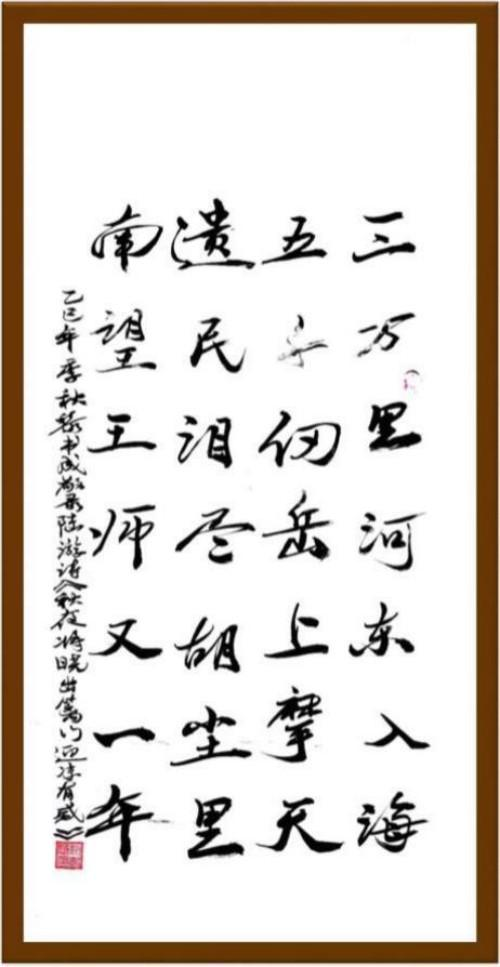 三万里河东入海
五千仞岳上摩天
遗民泪尽胡尘里
南望王师又一年
乙巳年季秋书成敬录陆游诗《秋夜将晓出篱门迎凉有感》